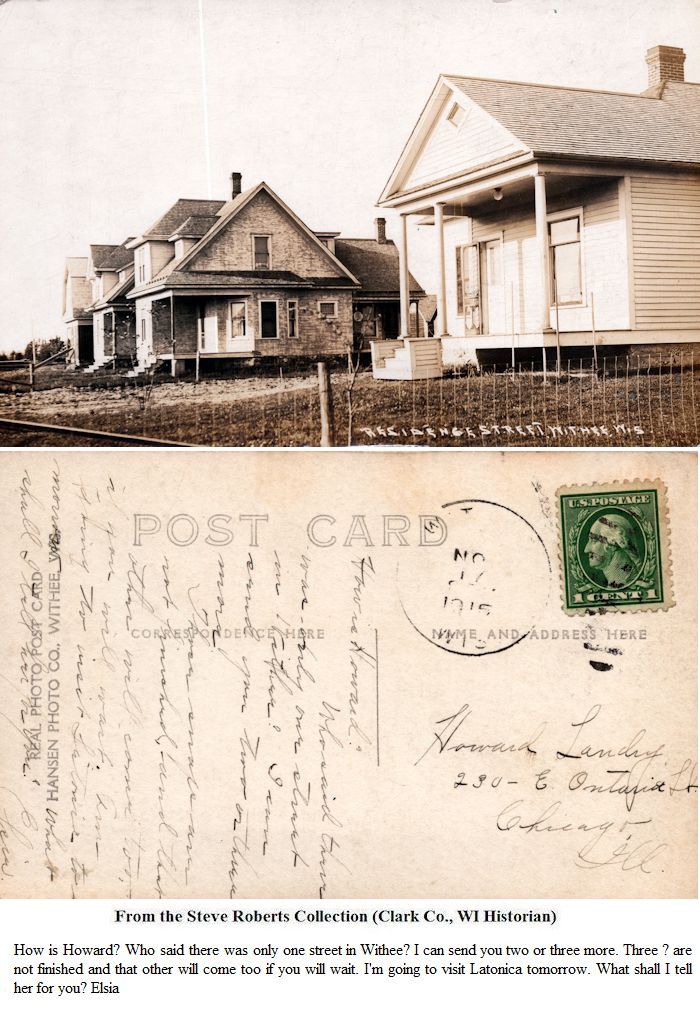 RESIDENCE STREET, WITHEE, WIS
POST CARD
CORRESPONDENCE HERE
NAME AND ADDRESS HERE
U.S. POSTAGE
1 CENT 1
NO
1915
How is Howard?
Who said there
was only one street
in Withee? I can
send you two or three
more.
are
not finished and that
other will come too,
if you will wait. Am
going to visit Latonica to-
morrow. What
shall I tell her for you?
Elsia.
REAL PHOTO POST CARD
HANSEN PHOTO CO., WITHEE, WIS.
Howard Landry
230 - E. Ontario St.
Chicago,
Ill.
From the Steve Roberts Collection (Clark Co., WI Historian)
How is Howard? Who said there was only one street in Withee? I can send you two or three more. Three ? are
not finished and that other will come too if you will wait. I'm going to visit Latonica tomorrow. What shall I tell
her for you? Elsia